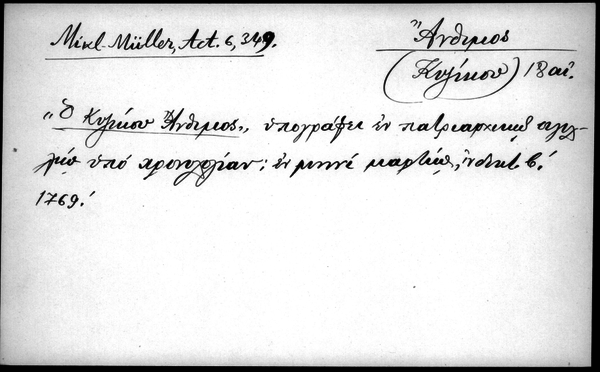 Mikl-Müller, Act. 6, 349.
Ἄνθιμος
(Κυζίκου) 18 αἰ.
"Ὁ Κυζίκου Ἄνθιμος„ ὑπογράφει ἐν πατριαρχικῷ σιγιλ-
λίῳ ὑπὸ χρονολογίαν: ἐν μηνὶ μαρτίῳ, ἰνδικτ. β΄.
1769.